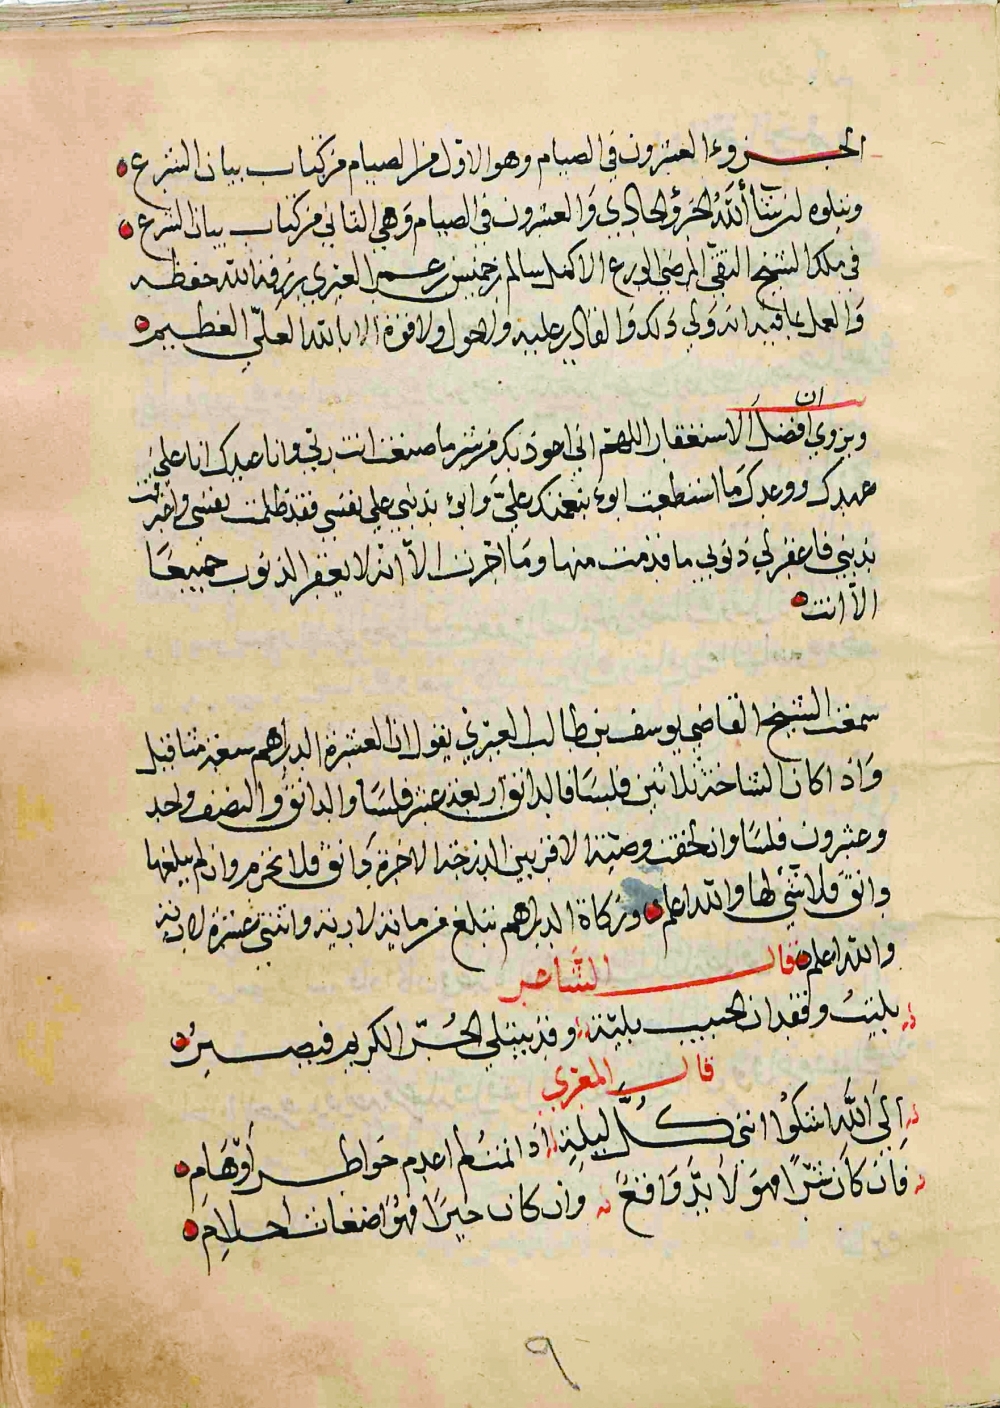 الجزوء العشرون في الصيام وهو الاول من الصيام من كتاب بيان الشرع
ويتلوه ان شآ الله الجزؤ الحادي والعشرون في الصيام وهي الثاني من كتاب بيان الشرع
في ملك الشيخ التقي المرضي الورع الاكمل سالم بن خميس بن عمر العبري رزقه الله حفظه
والعمل بما فيه انه ولي ذلك والقادر عليه ولا حول ولا قوة الا بالله العلي العظيم
ان
ويروي افضل الاستغفار اللهم اني اعوذ بك من شر ما صنعت انت ربي وانا عبدك انا علي
عهدك ووعدك ما استطعت ابوء بنعمتك علي وابوء بذنبي علي نفسي فقد ظلمت نفسي واعترفت
بذنبي فاغفر لي ذنوبي ما قدمت منها وما اخرت الا انه لا يغفر الذنوب جميعا
الا انت
سمعت الشيخ القاضي يوسف بن طالب العبري يقول ان العشرة الدراهم سبعة مثاقيل
واذا كان الشاخة ثلاثين فلسا فالدانق اربعة عشر فلسا والدانق والنصف واحد
وعشرون فلسا وان لحقت وصية الاقربين الدرجة الاخرة دانق فلا تحرم وان لم يبلغها
دانق فلا شئ لها والله اعلم وزكاة الدراهم تبلغ من ماية لارية واثنتي عشرة لارية
والله اعلم قال الشاعر
بليت وفقدان الحبيب بلية وقد يبتلي الحر الكريم فيصبر
قال المعري
الي الله اشكوا انني كل ليلة اذا نمت لم اعدم خواطر اوهام
فان كان شرا فهو لا بد واقع وان كان خيرا فهو اضغاث احلام
٩